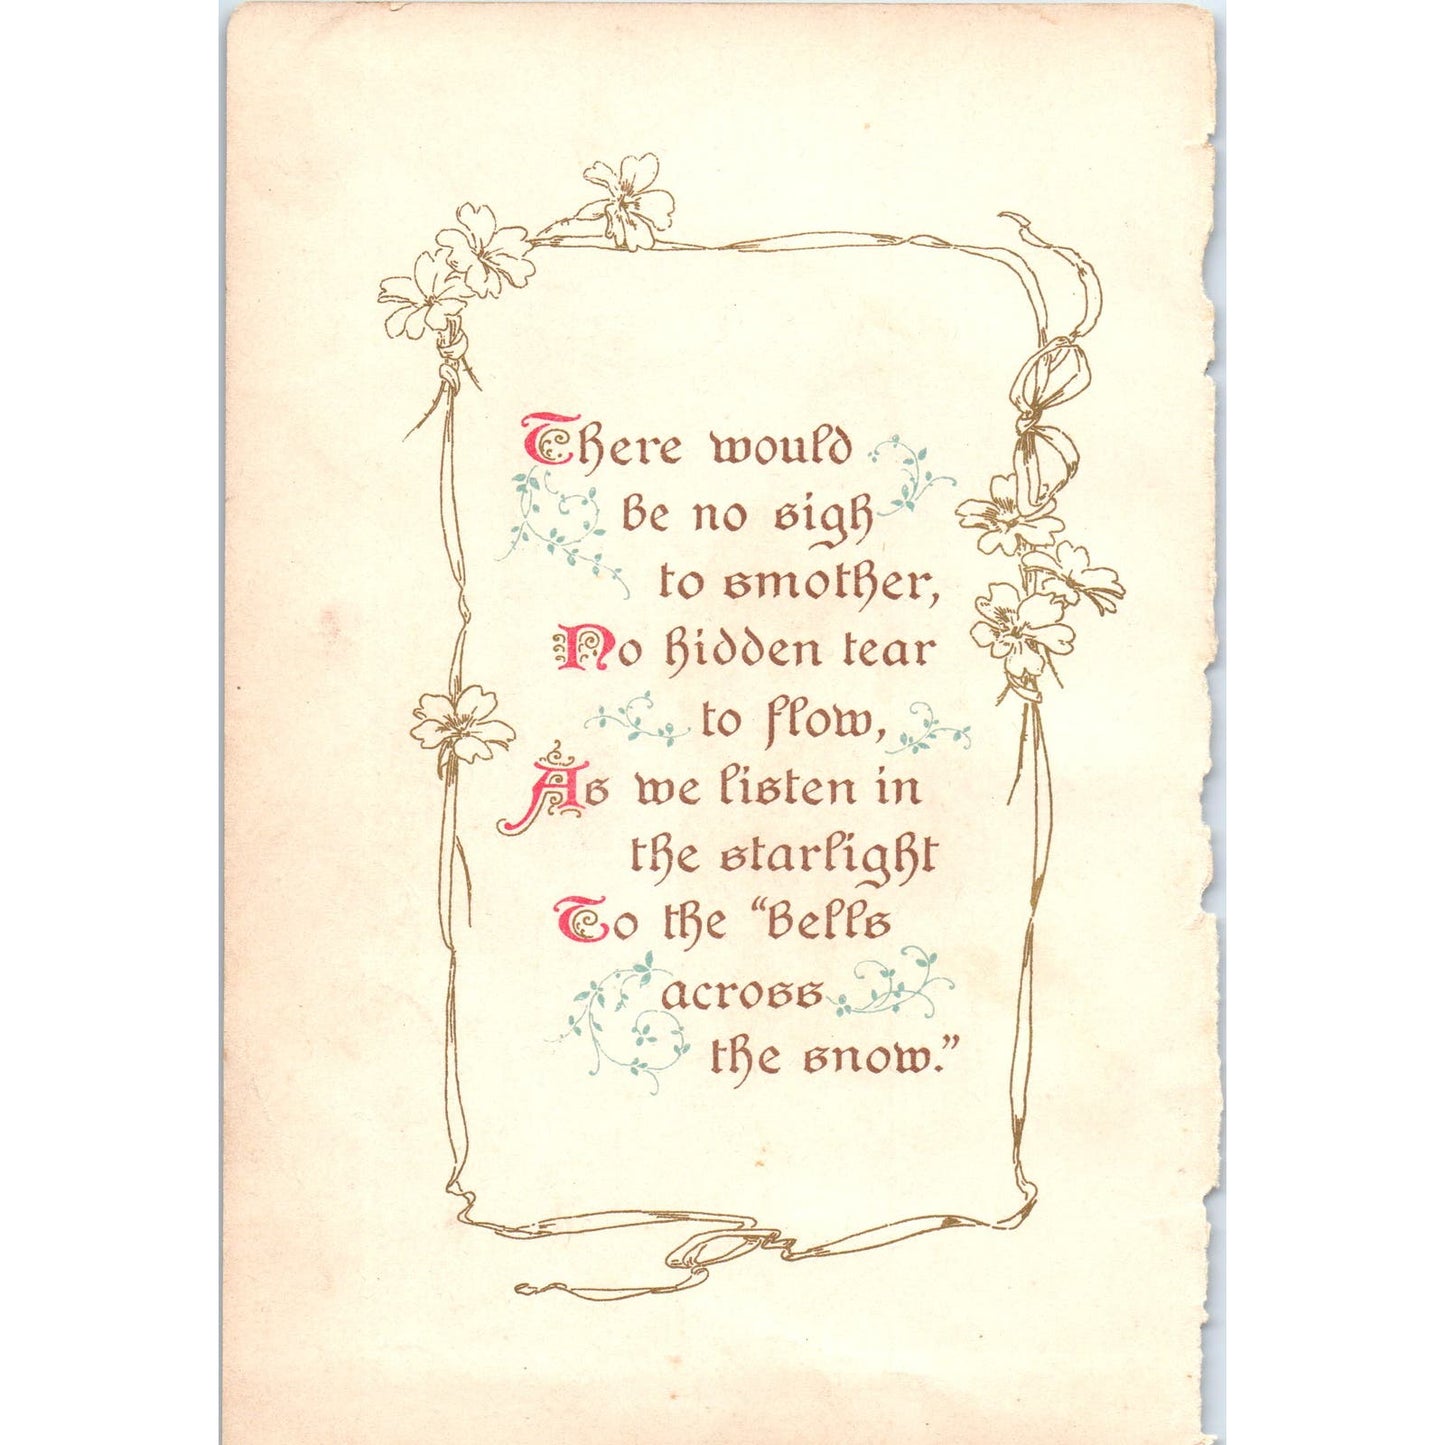 There would
be no sigh
to smother,
No hidden tear
to flow,
As we listen in
the starlight
To the “Bells
across
the snow.”